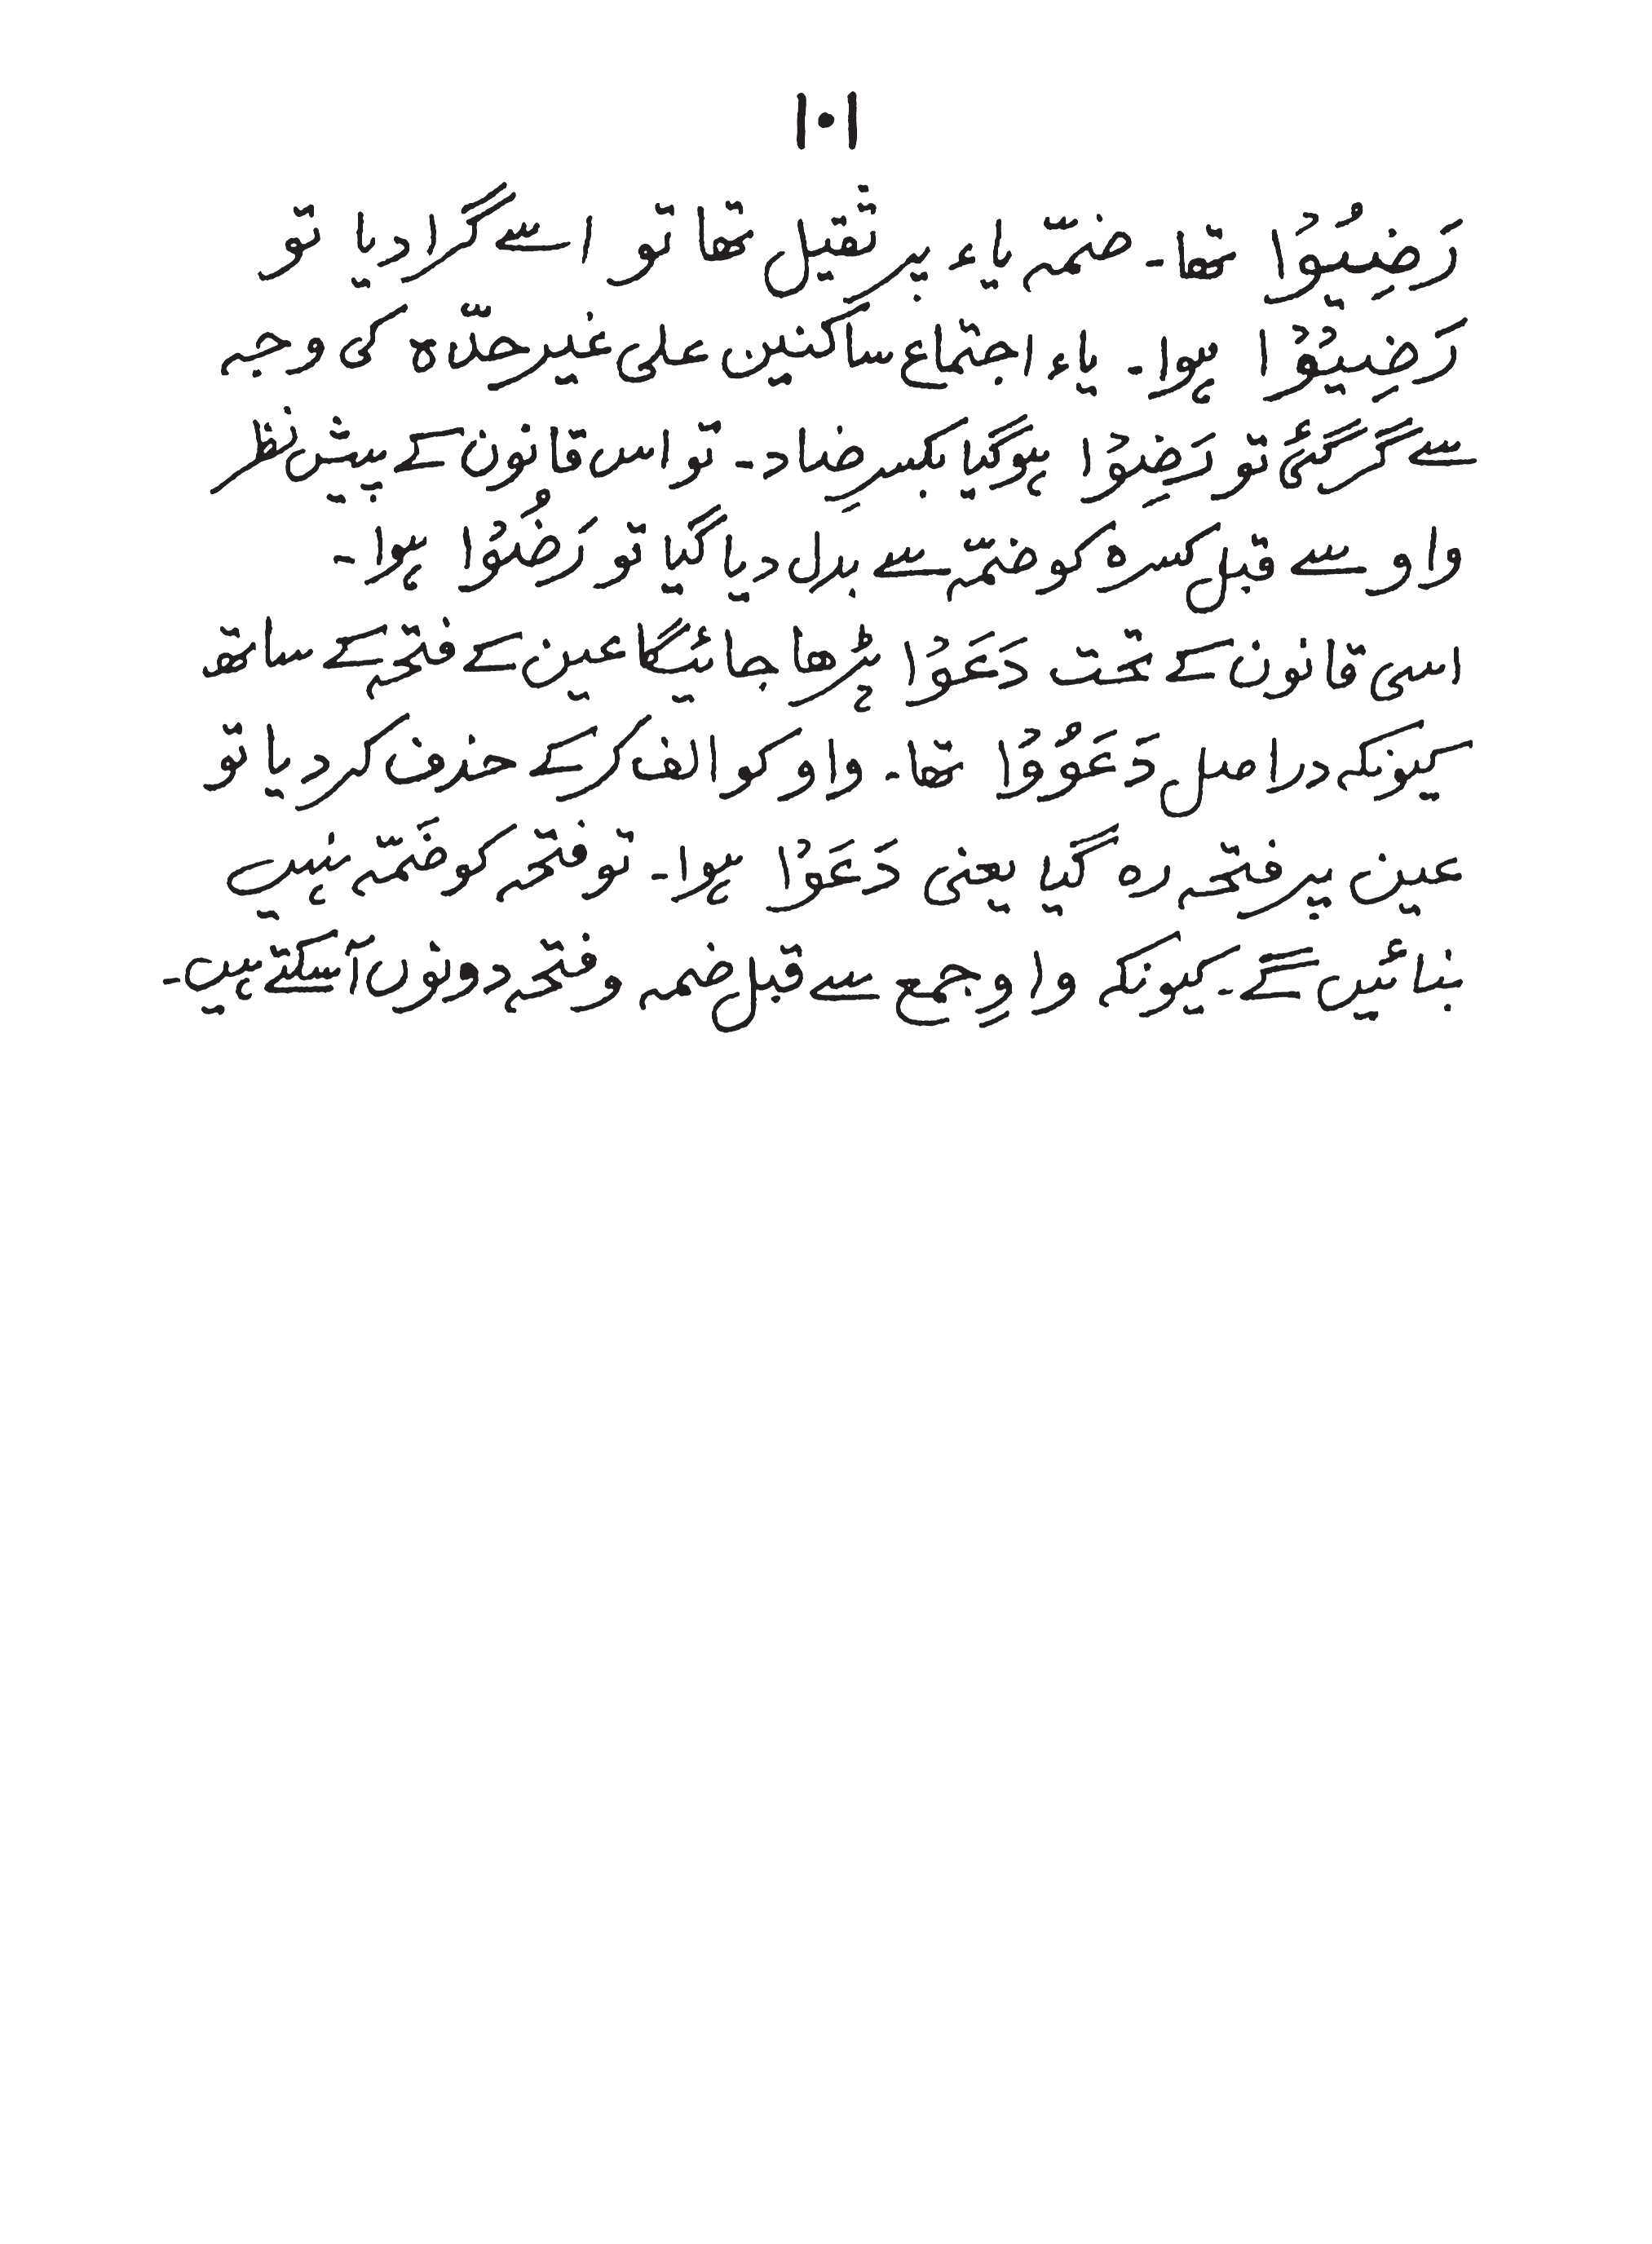 ۱۰۱
رَضِيُوْا تھا۔ ضمّہ یاء پر ثقیل تھا تو اسے گرا دیا تو
رَضِيْوْا ہوا۔ یاء اجتماع ساکنین علی غیر حدّہ کی وجہ
سے گر گئی تو رَضِوْا ہو گیا بکسرِ ضاد۔ تو اس قانون کے پیش نظر
واو سے قبل کسرہ کو ضمّہ سے بدل دیا گیا تو رَضُوْا ہوا۔
اسی قانون کے تحت دَعَوْا پڑھا جائیگا عین کے فتحہ کے ساتھ
کیونکہ در اصل دَعَوُوْا تھا۔ واو کو الف کر کے حذف کر دیا تو
عین پر فتحہ رہ گیا یعنی دَعَوْا ہوا۔ تو فتحہ کو ضَمّہ نہیں
بنائیں گے۔ کیونکہ واوِ جمع سے قبل ضمہ و فتحہ دونوں آسکتے ہیں۔